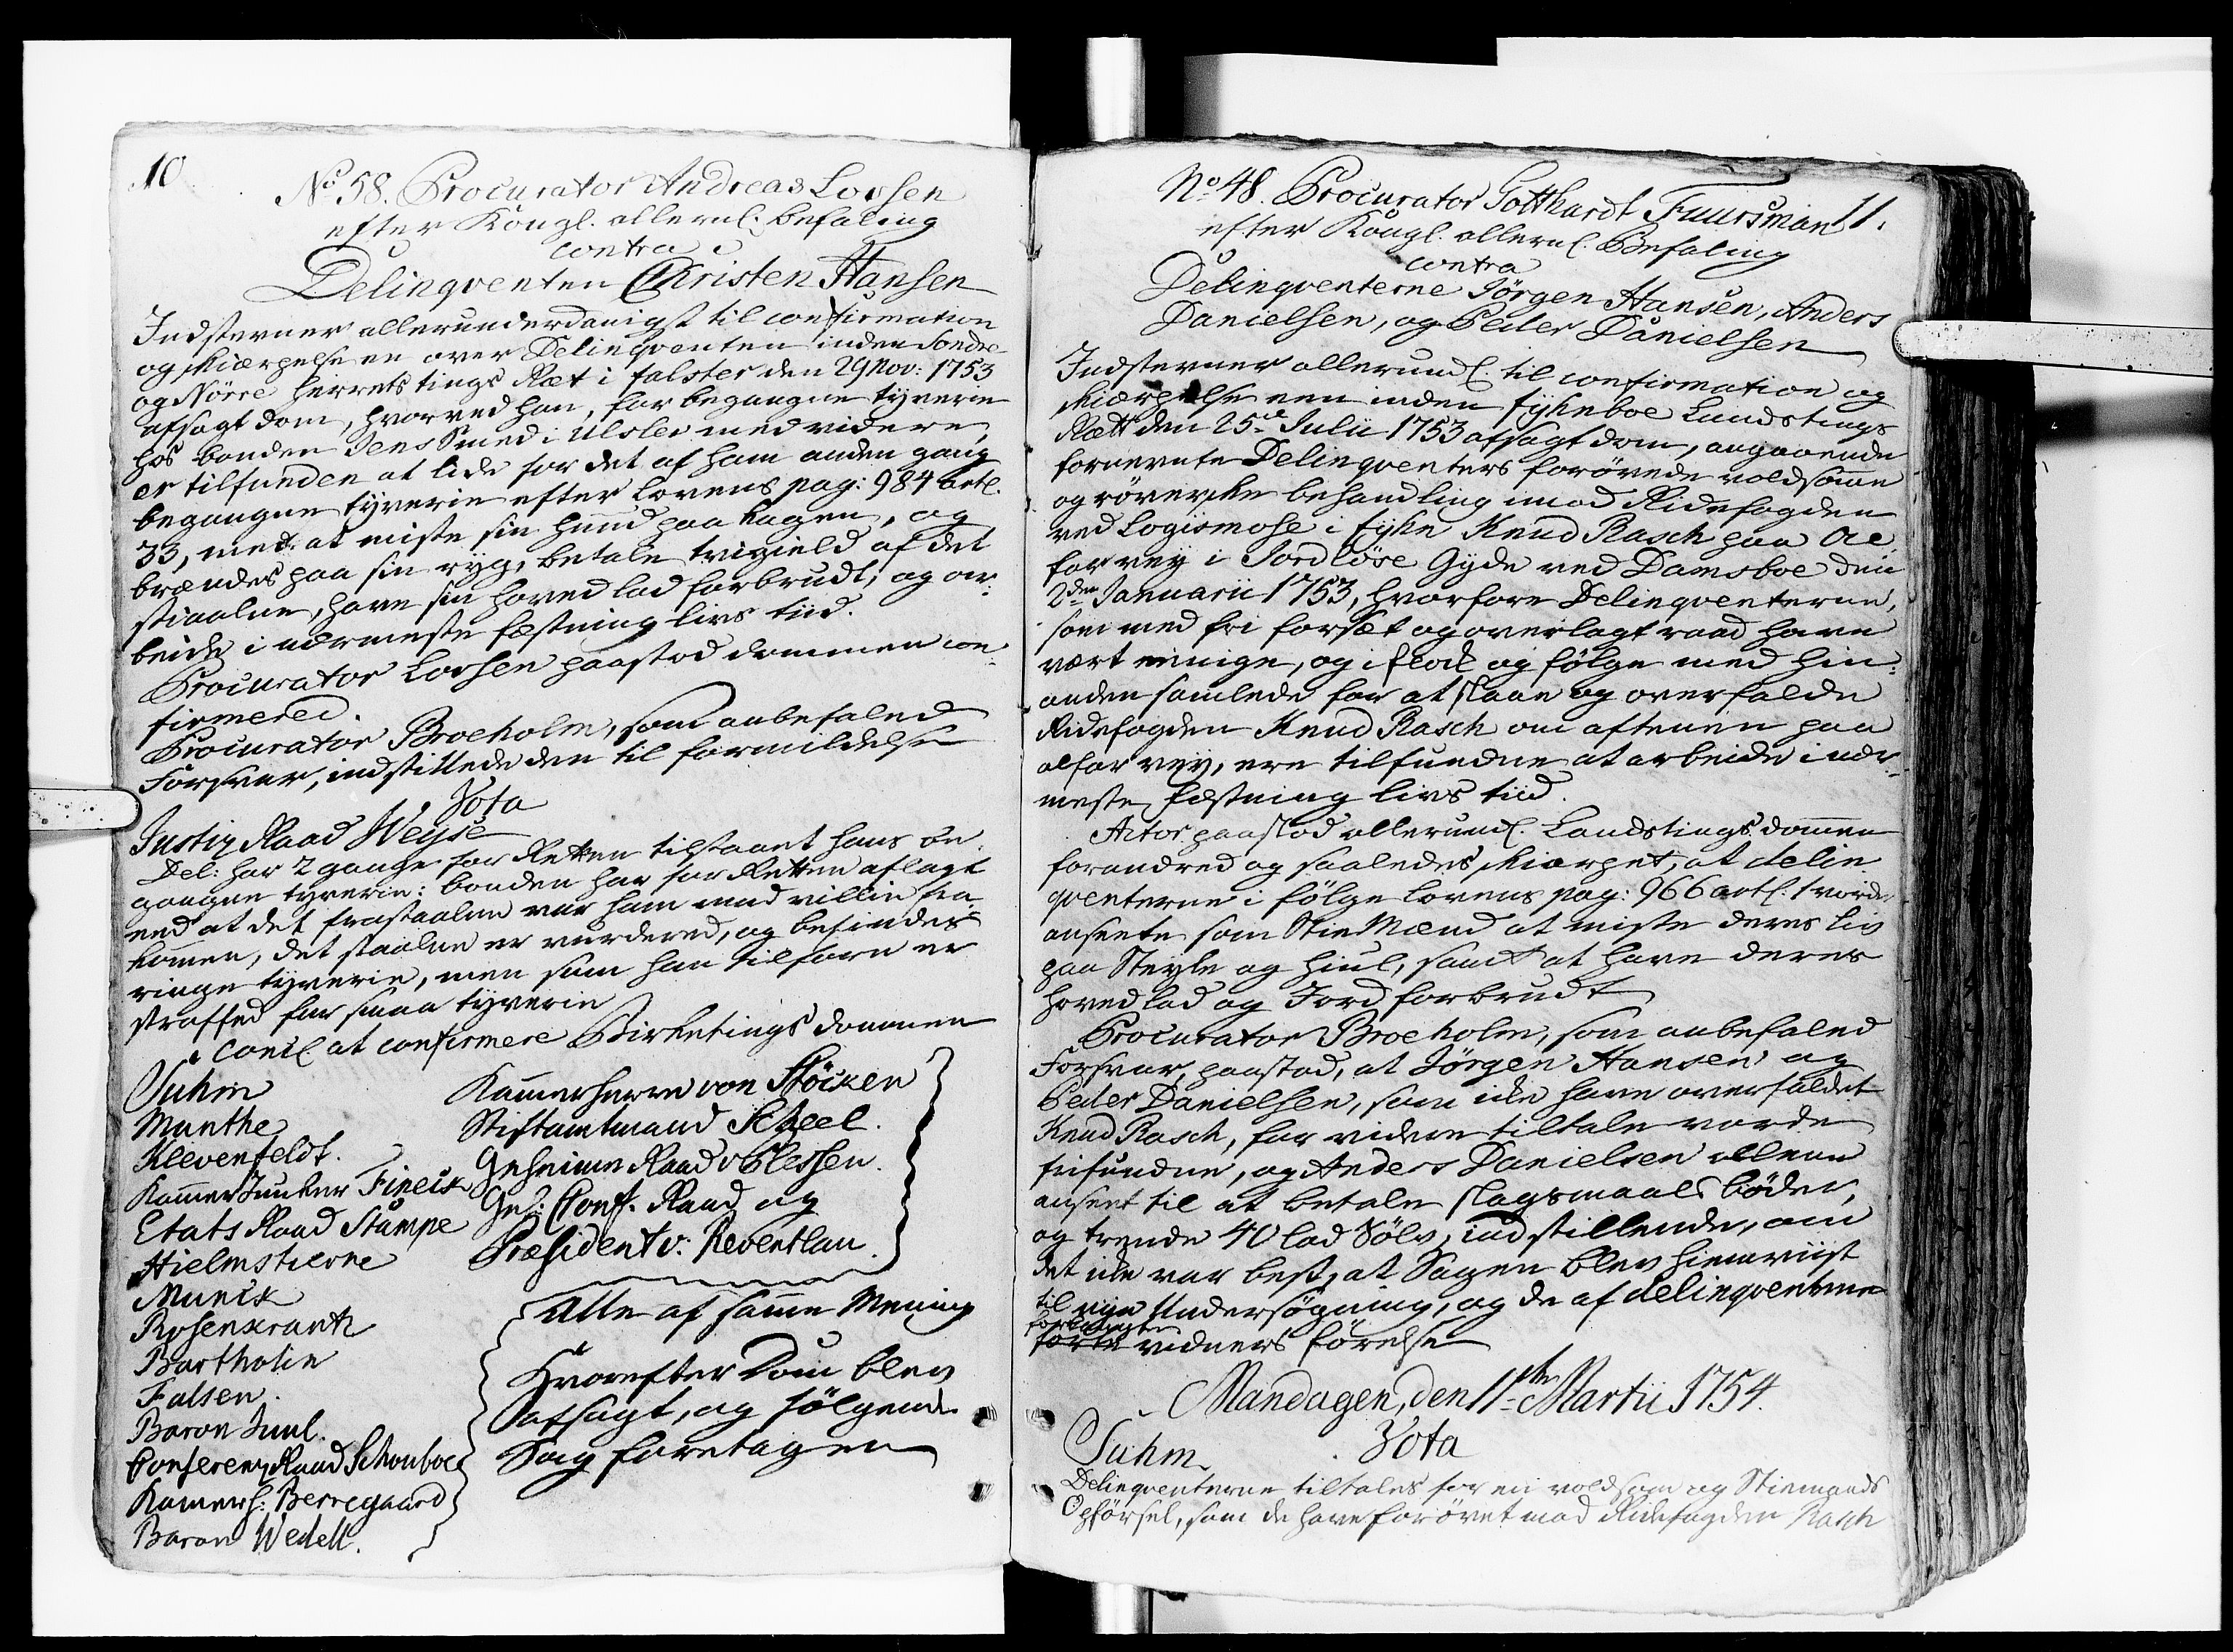 10
No 58. Procurator Andreas Lossen
efter Kongl. allern. befaling
contra
Delinqventen Christen Hansen
Indstevner allerunderdanigst til confirmation
og skiærpelse en over Delinqventen inden Søndre
og Nörre herrets tings Ræt i falster den 29 Nov: 1753
afsagt dom, hvorved han, for begangne tyverie
hos bonden Jens Smed i Ulslev med videre,
er tilfunden at lide for det af ham anden gang
begangne tyverie efter Lovens pag: 984 artl.
33, med at miste sin hud paa kagen, og
brændes paa sin ryg, betale tvigield af det
stiaalne, have sin hoved lod forbrudt, og ar-
beide i nærmeste fæstning livs tiid.
Procurator Lossen paastod dommen con-
firmered.
Procurator Broeholm, som anbefaled
Forsvar, indstillede den til formildelse
Vota
Justiz Raad Weyse
Del: har 2 gange for Retten tilstaaet hans be-
gangne tyverie: bonden har for Retten aflagt
eed at det frastaalne var ham mod villie fra-
kommen, det staalne er vurdered, og befindes
ringe tyverie, men som han tilforn er
straffed for smaa tyverie
Concl. at confirmere Birketings dommen
Suhm
Munthe
Klevenfeldt.
Kammer Junker Fineck
Etats Raad Stampe
Hielmstierne
Munck
Rosenkrantz
Bartholin
Falsen.
Baron Juul.
Conferenz Raad Schouboe
Kamerh: Berregaard
Baron Wedell.
Kammerherre von Stöcken
Stiftamtmand Scheel.
Geheime Raad v Plessen.
Geh: Conf. Raad og
Præsident v: Reventlau.
Alle af samme Mening
Hvorefter Dom blev
afsagt, og fölgende
Sag foretagen
No 48. Procurator Gotthardt Fuursman 11.
efter Kongl. allern. Befaling
contra
Delinqventerne Jörgen Hansen, Anders
Danielsen, og Peder Danielsen
Indstevner allerund. til confirmation og
skiærpelse een inden fyhnboe Landstings
Rætt den 25de Julii 1753 afsagt dom, angaaende
fornevnte Delinqventers forövede voldsomme
og röveriske behandling imod Ridefogden
ved Logismose i fyhn Knud Rasch paa al
farvey i Jordlöse Gyde ved Damsboe den
2den Januarii 1753, hvorfore Delinqventerne,
som med fri forsæt og overlagt raad have
vært eenige, og i flock og fölge med hin-
anden samlede for at slaae og overfalde
Ridefogden Knud Rasch om aftenen paa
alfar vey, ere tilfundne at arbeide i nær-
meste fæstning livs tiid.
Actor paastod allerund. Landstings dommen
forandred og saaledes skiærpet, at delin
qventerne i fölge Lovens pag: 966 artl. 1 vorde
ansete som Stie Mænd at miste deres liv
paa Steyle og hiul, samt at have deres
hoved lod og Jord forbrudt
Procurator Broeholm, som anbefaled
Forsvar, paastod, at Jörgen Hansen og
Peder Danielsen, som ikke have overfaldet
Knud Rasch, for videre tiltale vorde
frifundne, og Anders Danielsen allene
anseet til at betale slagsmaals böder,
og trende 40 lod Sölv, indstillende, om
det ikke var best, at Sagen blev hiemviist
til nye Undersögning, og de af delinqventerne
forlangte
förte vidners förelse
Mandagen, den 11te Martii 1754.
Vota
Suhm
Delinqventerne tiltales for en voldsom og Stiemands
Opförsel, som de have forövet mod Ridefogden Rasch